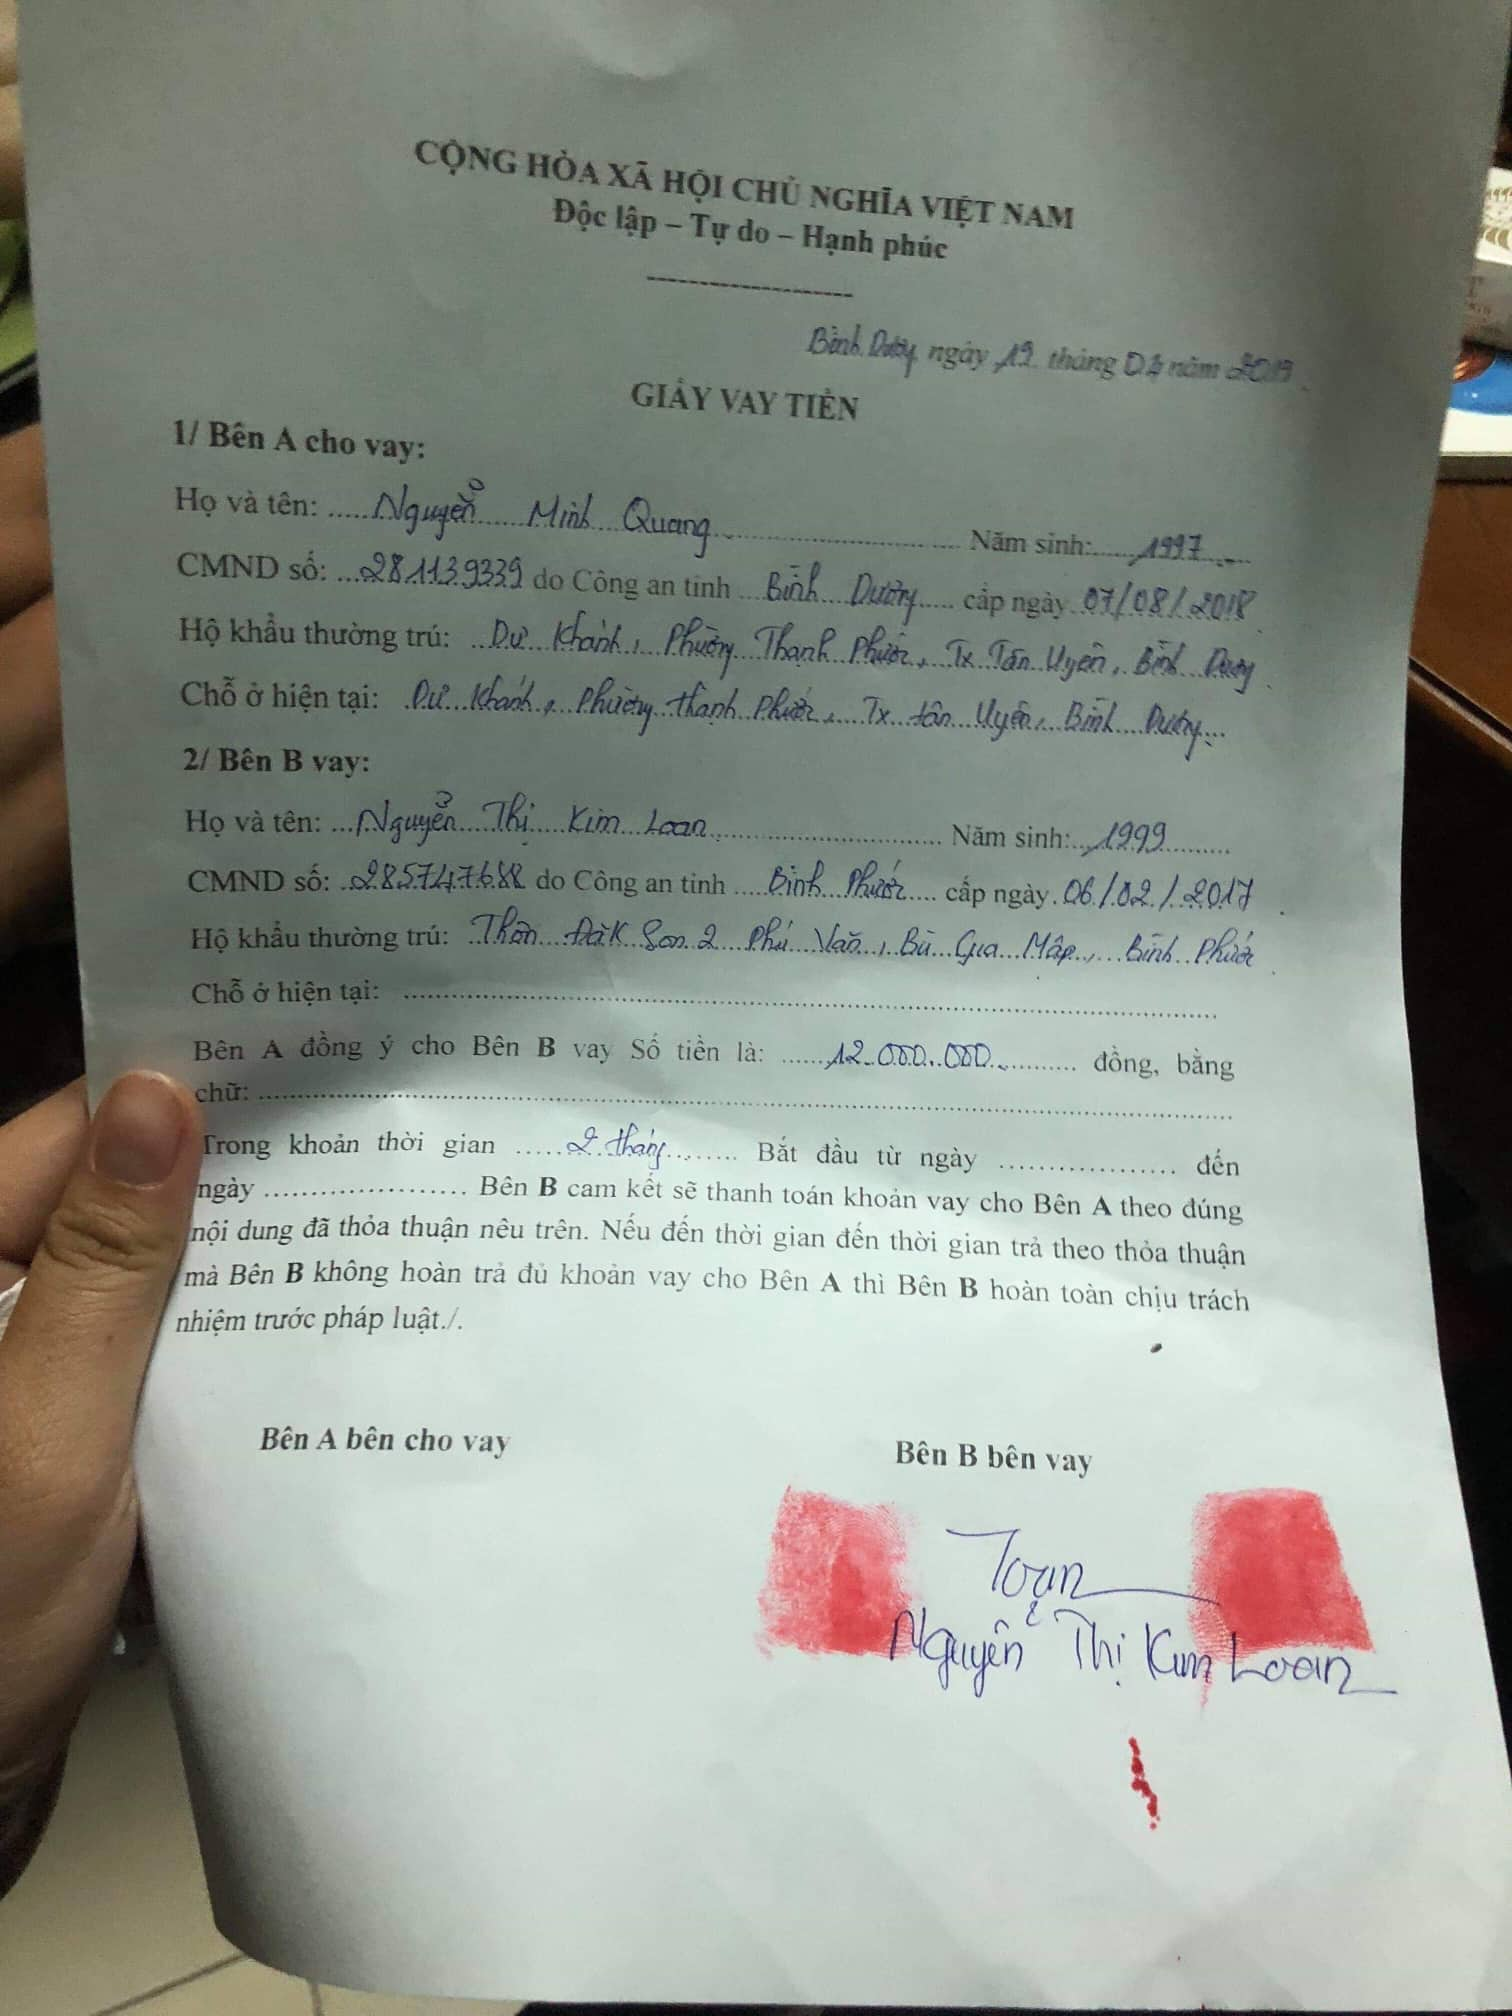 CỘNG HÒA XÃ HỘI CHỦ NGHĨA VIỆT NAM
Độc lập – Tự do – Hạnh phúc
--------------------
Bình Dương, ngày 19 tháng năm 2019
GIẤY VAY TIỀN
1/ Bên A cho vay:
Họ và tên: Nguyễn Minh Quang Năm sinh: 1997
CMND số: 281139339 do Công an tỉnh Bình Dương cấp ngày 07/08/2018
Hộ khẩu thường trú: Dư Khánh, Phường Thạnh Phước, Tx Tân Uyên, Bình Dương
Chỗ ở hiện tại: Dư Khánh, Phường Thạnh Phước, Tx tân Uyên, Bình Dương
2/ Bên B vay:
Họ và tên: Nguyễn Thị Kim Loan Năm sinh: 1999
CMND số: 285747688 do Công an tỉnh Bình Phước cấp ngày 06/02/2017
Hộ khẩu thường trú: Thôn Đăk Son 2 Phú Văn, Bù Gia Mập, Bình Phước
Chỗ ở hiện tại:
Bên A đồng ý cho Bên B vay Số tiền là: 12.000.000 đồng, bằng
chữ:
Trong khoản thời gian 2 tháng Bắt đầu từ ngày đến
ngày Bên B cam kết sẽ thanh toán khoản vay cho Bên A theo đúng
nội dung đã thỏa thuận nêu trên. Nếu đến thời gian đến thời gian trả theo thỏa thuận
mà Bên B không hoàn trả đủ khoản vay cho Bên A thì Bên B hoàn toàn chịu trách
nhiệm trước pháp luật./.
Bên A bên cho vay Bên B bên vay
Loan
Nguyễn Thị Kim Loan